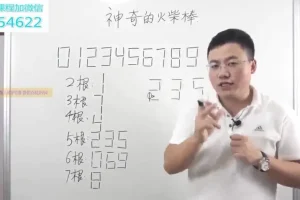 课程加微信
54622
神奇的火柴棒
0123456789
2根 1
3根 7
4根
5根 235
6根 069
7根 8
235